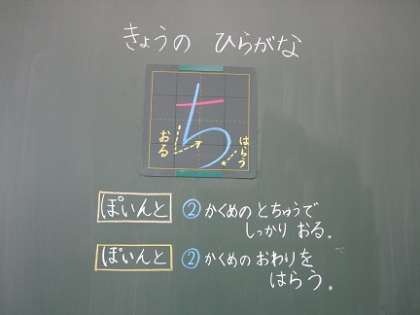 きょうの ひらがな
ち
おる
はらう
ぽいんと ②かくめの とちゅうで
しっかり おる。
ぽいんと ②かくめの おわりを
はらう。